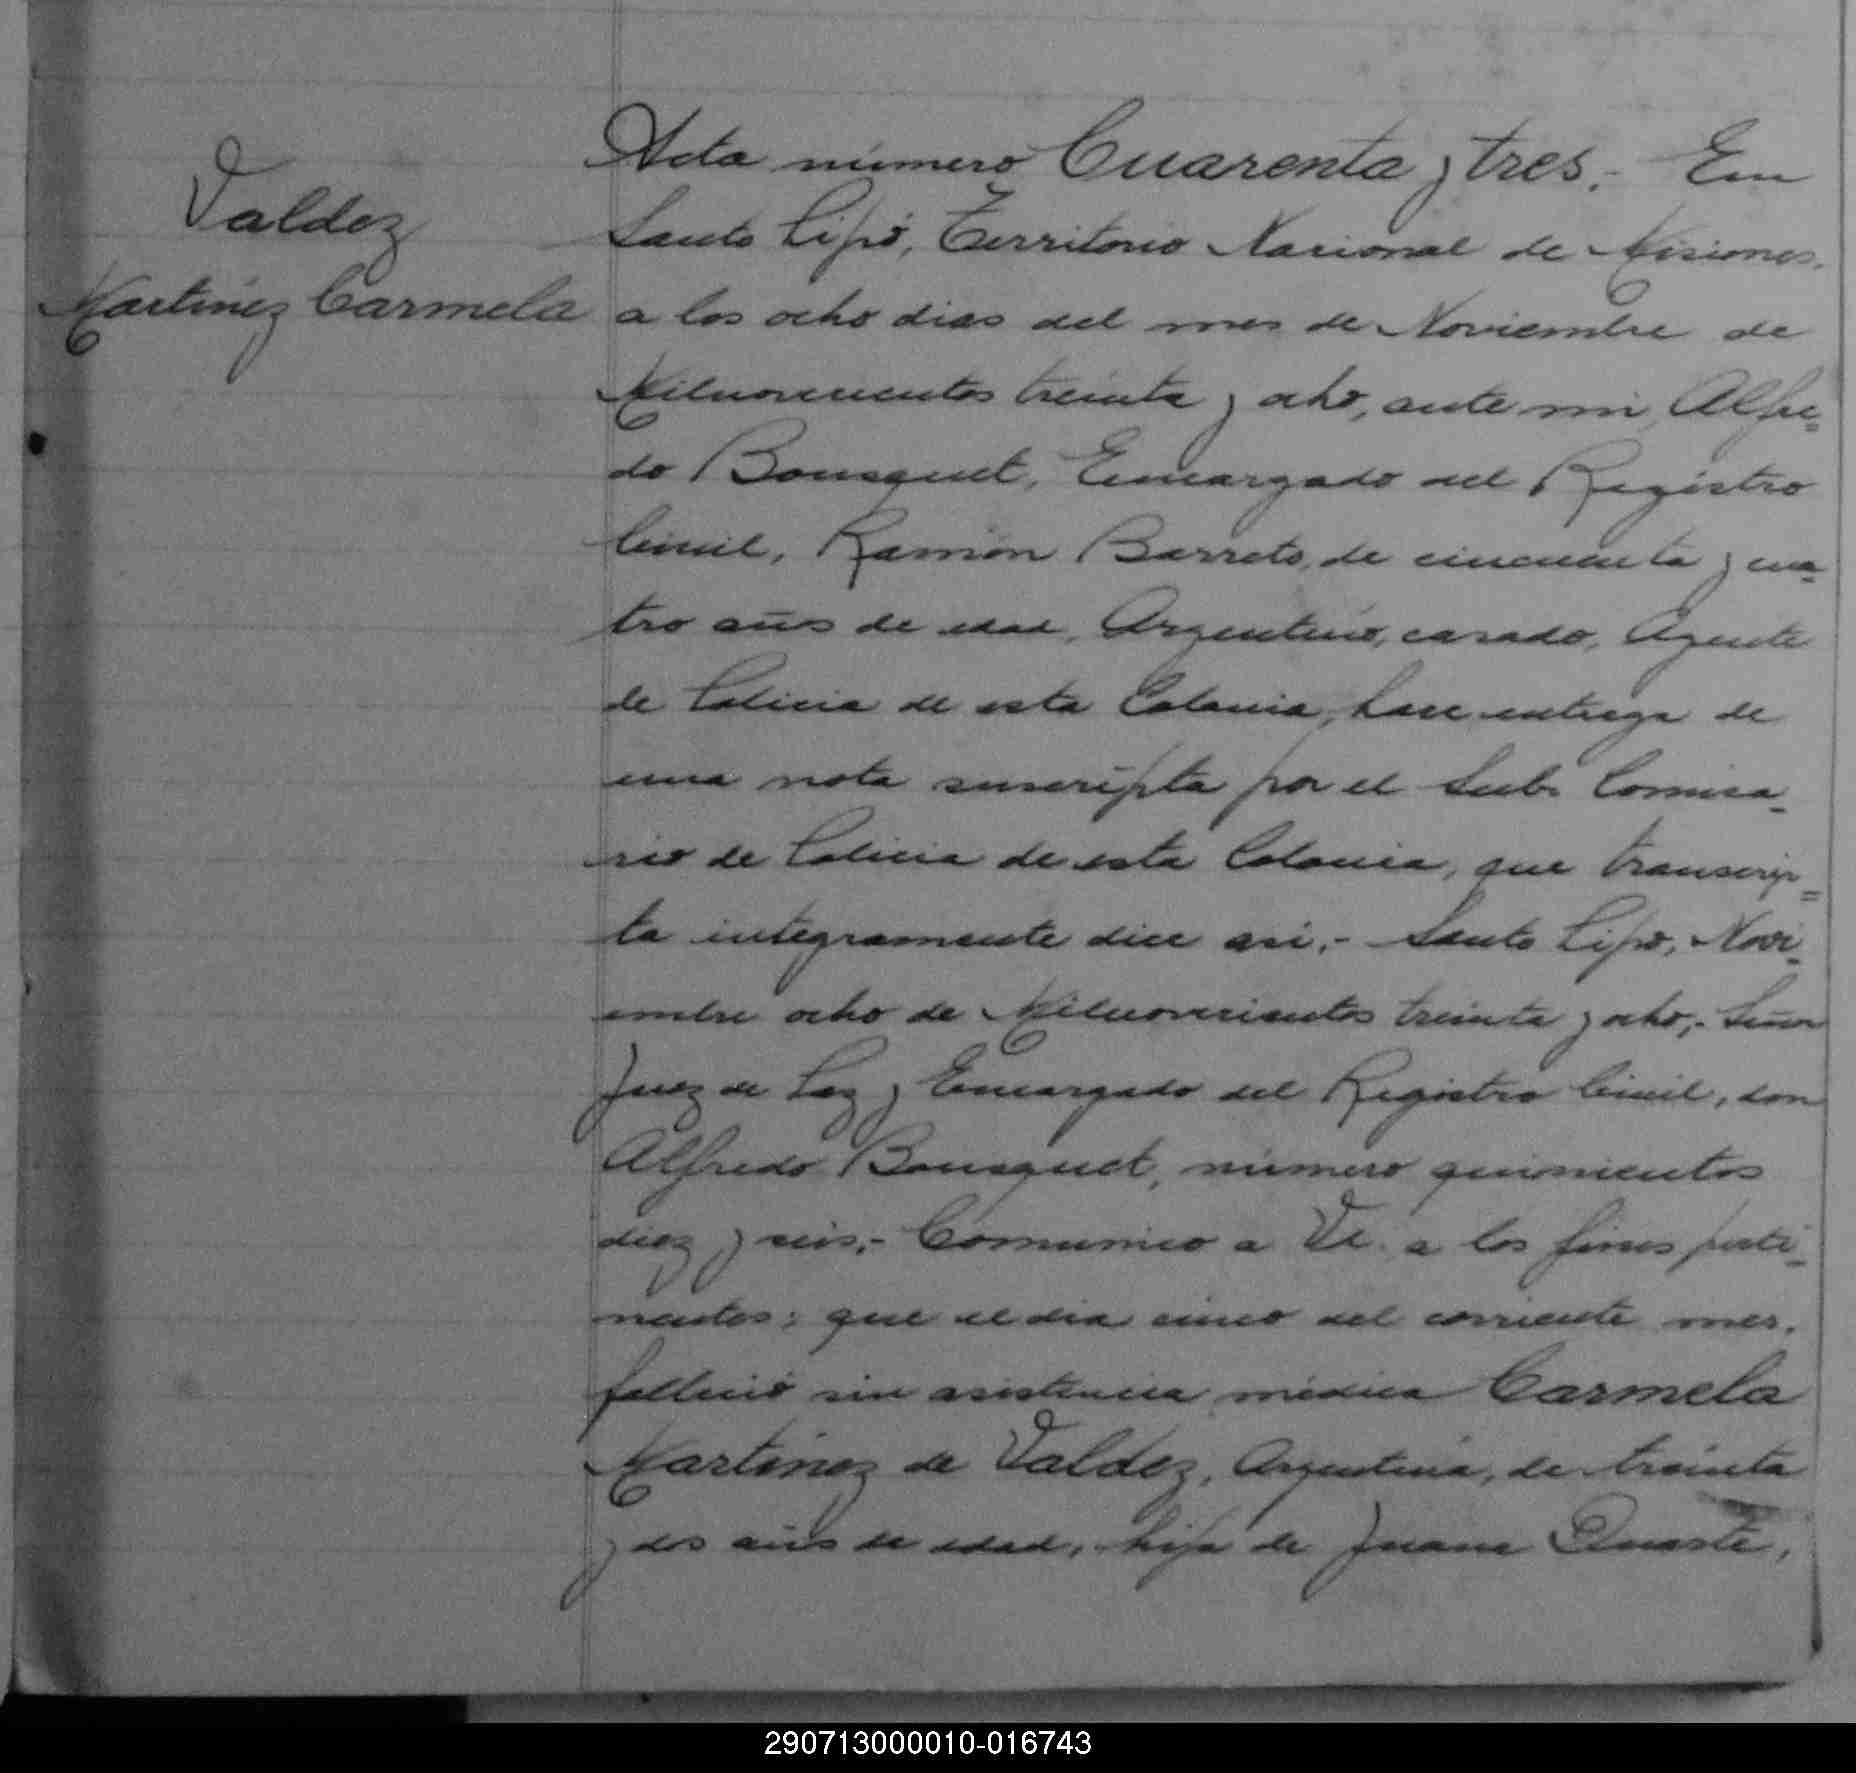 Valdez
Martínez Carmela
Acta número Cuarenta y tres.- En
Santo Pipó, Territorio Nacional de Misiones,
a los ocho dias del mes de Noviembre de
Milnovecientos treinta y ocho, ante mi, Alfre=
do Bousquet, Encargado del Registro
Civil, Ramón Barreto, de cincuenta y cua-
tro años de edad, Argentino, casado, Agente
de Policia de esta Colonia, hace entrega de
una nota suscripta por el Sub Comisa-
rio de Policia de esta Colonia, que transcrip=
ta integramente dice asi,- Santo Pipó, Novi-
embre ocho de Milnovecientos treinta y ocho,- Señor
Juez de Paz y Encargado del Registro Civil, don
Alfredo Bousquet, número quinientos
diez y seis,- Comunico a Vd. a los fines perti-
nentes; que el dia cinco del corriente mes,
falleció sin asistencia médica Carmela
Martínez de Valdez, Argentina, de treinta
y dos años de edad, hija de Juana Duarte,
290713000010-016743